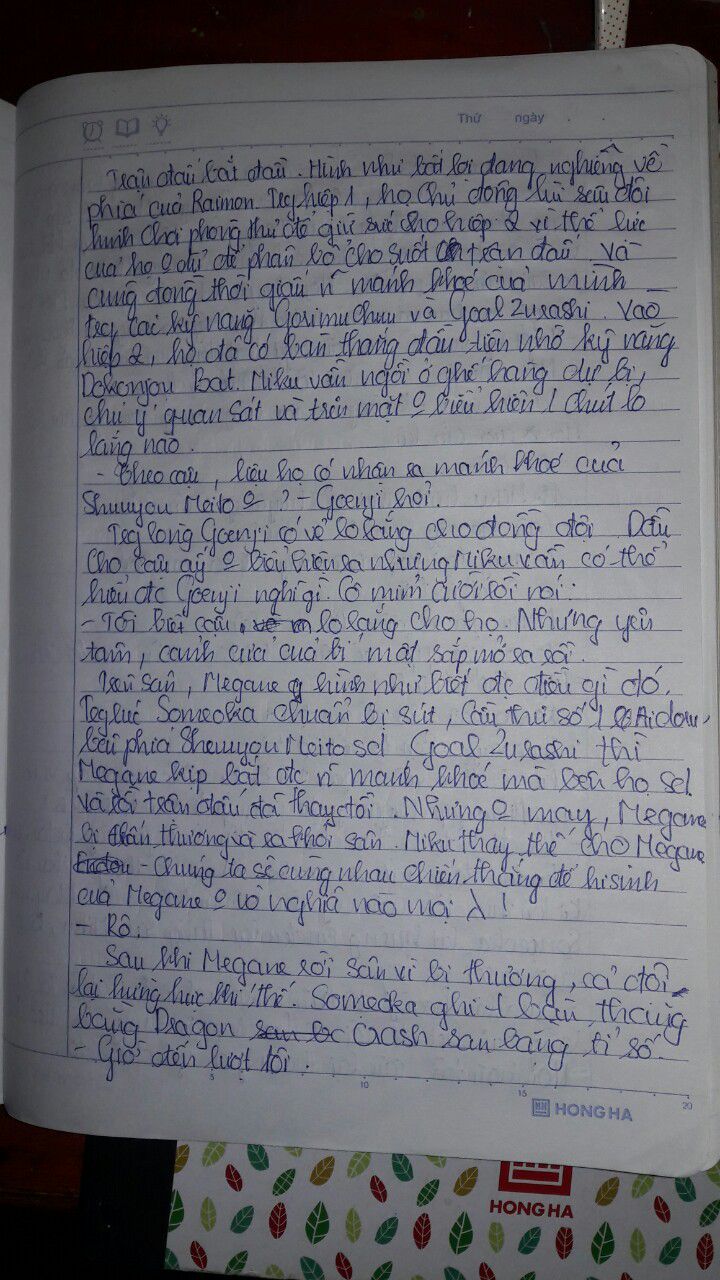 Thứ ngày
Trận đấu bắt đầu. Hình như bất lợi đang nghiêng về
phía của Raimon. Trg hiệp 1, họ chủ động lùi sâu đội
hình chơi phòng thủ để giữ sức cho hiệp 2 vì thể lực
của họ 0 đủ để phân bố cho suốt trận đấu và
cũng đồng thời giấu vì mánh khoé của mình
trg các kỹ năng Gorimuchuu và Goal Zurashi. Vào
hiệp 2, họ đã có bàn thắng đầu tiên nhờ kỹ năng
Dokonjou Bat. Miku vẫn ngồi ở ghế hàng dự bị,
chú ý quan sát và trên mặt 0 biểu hiện 1 chút lo
lắng nào.
- Theo cậu, liệu họ có nhận ra mánh khoé của
Shuuyou Meito 0 ? - Goenji hỏi.
Trg lòng Goenji có vẻ lo lắng cho đồng đội. Dẫu
cho cậu ấy 0 biểu hiện ra nhưng Miku vẫn có thể
hiểu đc Goenji nghĩ gì. Cô mỉm cười rồi nói:
- Tôi biết cậu lo lắng cho họ. Nhưng yên
tâm, cánh cửa của bí mật sắp mở ra rồi.
Trên sân, Megane hình như biết đc điều gì đó.
Trg lúc Someoka chuẩn bị sút, cầu thủ số 1 là Aidou
bên phía Shuuyou Meito sd Goal Zurashi thì
Megane kịp bắt đc vì mánh khoé mà bên họ sd.
và rồi trận đấu đã thay đổi. Nhưng 0 may, Megane
bị chấn thương và ra khỏi sân. Miku thay thế cho Megane
Endou - Chúng ta sẽ cùng nhau chiến thắng để hi sinh
của Megane 0 vô nghĩa nào mọi λ !
- Rõ.
Sau khi Megane rời sân vì bị thương, cả đội
lại hừng hực khí thế. Someoka ghi 1 bàn thắng
bằng Dragon Crash san bằng tỉ số.
- Giờ đến lượt tôi.
5 10 15 20
HONG HA
HONG HA